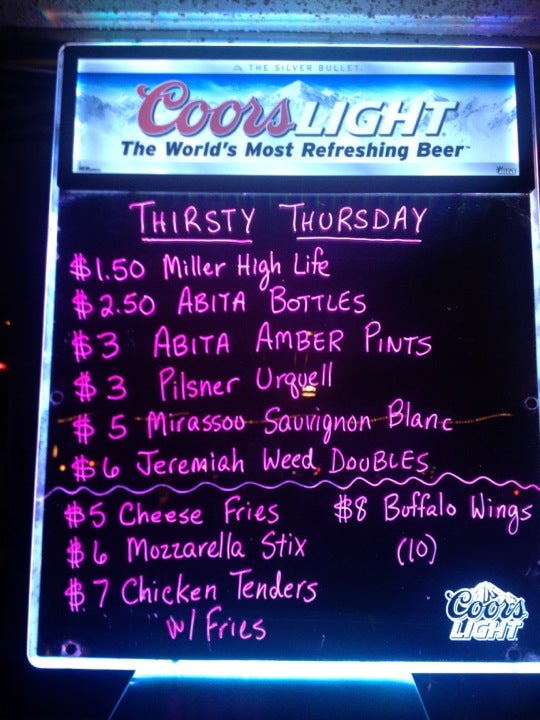 THE SILVER BULLET
Coors LIGHT
The World's Most Refreshing Beer
THIRSTY THURSDAY
$1.50 Miller High Life
$2.50 ABITA BOTTLES
$3 ABITA AMBER PINTS
$3 Pilsner Urquell
$5 Mirassou Sauvignon Blanc
$6 Jeremiah Weed DOUBLES
$5 Cheese Fries $8 Buffalo Wings
$6 Mozzarella Stix (10)
$7 Chicken Tenders
w/ Fries
Coors
LIGHT